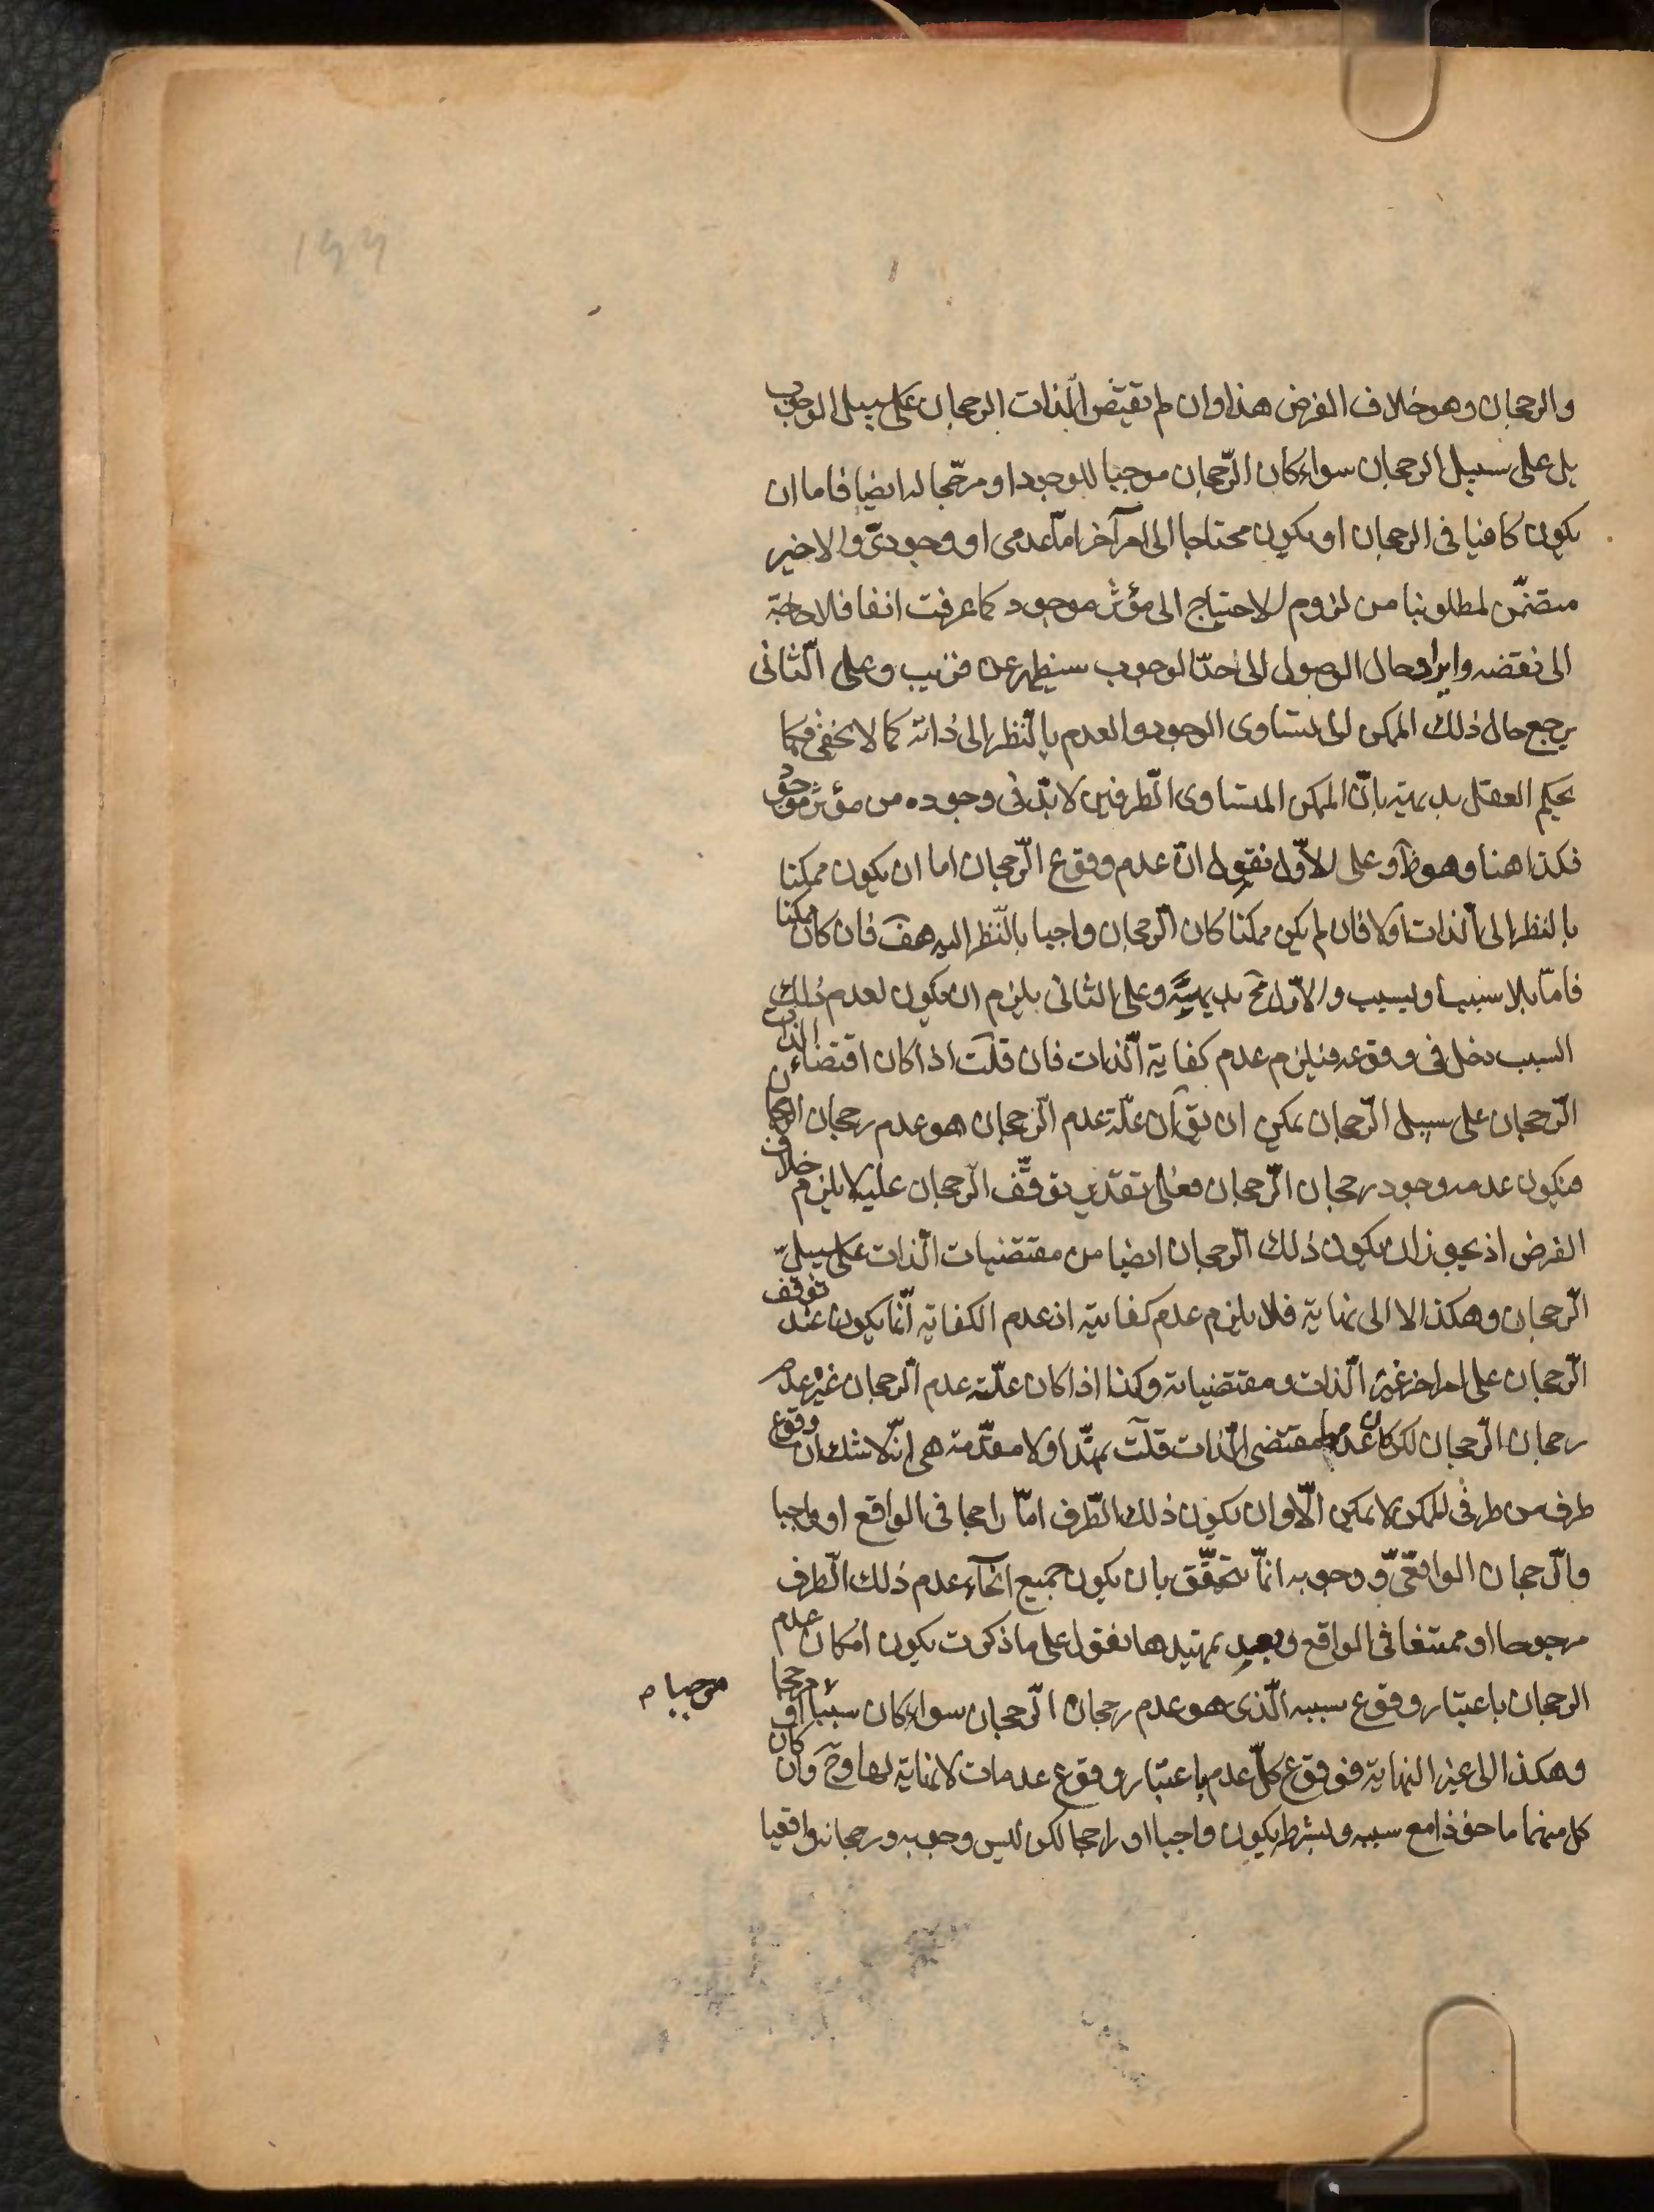 والرجحان وهو خلاف الفرض هذا وان لم يقتض الذات الرجحان على سبيل الوجوب
بل على سبيل الرجحان سواء كان الرّجحان موجبا للوجود او مرجّحا له ايضا فاما ان
يكون كافيا فى الرجحان او يكون محتاجا الى امر آخر امّا عدمى او وجودىّ والاخير
متضمّن لمطلوبنا من لزوم الاحتياج الى مؤثر موجود كما عرفت انفا فلا حاجة
الى نقضه وايراد حال الوصول الى حدّ الوجوب سيظهر عن قريب وعلى الثّانى
يرجع حال ذلك الممكن الى تساوى الوجود والعدم بالنّظر الى ذاته كما لا يخفى فكما
يحكم العقل بديهة بانّ الممكن المتساوى الطّرفين لا بدّ فى وجوده من مؤثر موجود
فكذا هنا وهو ظ وعلى الاوّل نقول انّ عدم وقوع الرّجحان اما ان يكون ممكنا
بالنظر الى الذات او لا فان لم يكن ممكنا كان الرّجحان واجبا بالنّظر اليه هف فان كان ممكنا
فامّا بلا سبب او بسبب والاوّل مح بديهيّة وعلى الثانى يلزم ان يكون لعدم ذلك
السبب دخل فى وقوعه فيلزم عدم كفاية الذات فان قلت اذا كان اقتضاء الذات
الرّجحان على سبيل الرّجحان يمكن ان يق ان علّة عدم الرّجحان هو عدم رجحان الرجحان
فيكون عدمه وجود رجحان الرّجحان فعلى تقدير توقّف الرّجحان عليه لا يلزم خلاف
الفرض اذ يجوز ان يكون ذلك الرّجحان ايضا من مقتضيات الذات على سبيل
الرّجحان وهكذا لا الى نهاية فلا يلزم عدم كفايته اذ عدم الكفاية انّما يكون عند توقف
الرّجحان على امر اخر غير الذات ومقتضياته وكذا اذا كان علّة عدم الرجحان غير عدم
رجحان الرّجحان لكن كان عدمها مقتضى الذات قلت نمهّد اولا مقدّمة هى انّه لا شك ان وقوع
طرف من طرفى الممكن لا يمكن الّا وان يكون ذلك الطّرف امّا راجحا فى الواقع او واجبا
والرّجحان الواقعىّ ووجوبه انّما يتحقّق بان يكون جميع انحاء عدم ذلك الطّرف
مرجوحا او ممتنعا فى الواقع وبعد تمهيدها نقول على ما ذكرت يكون امكان عدم
الرجحان باعتبار وقوع سببه الّذى هو عدم رجحان الرّجحان سواء كان سببا مرجحا او
موجبا م
وهكذا الى غير النهاية فوقوع كلّ عدم باعتبار وقوع عدمات لا نهاية لها وح وان كان
كل منهما ماخوذا مع سببه وبشرطه يكون واجبا او راجحا لكن ليس وجوبه ورجحانه واقعيا